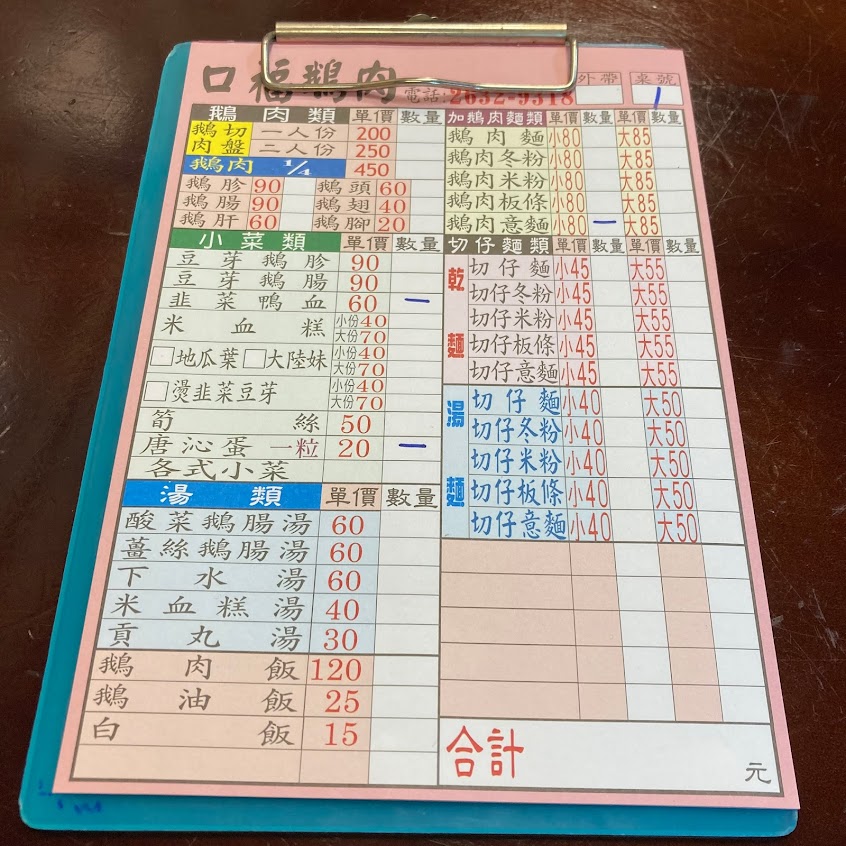 口福鵝肉
電話:2632-9518
外帶 桌號
1
鵝肉類 單價 數量
鵝切肉盤 一人份 200
二人份 250
鵝肉 1/4 450
鵝胗 90 鵝頭 60
鵝腸 90 鵝翅 40
鵝肝 60 鵝腳 20
小菜類 單價 數量
豆芽鵝胗 90
豆芽鵝腸 90
韭菜鴨血 60 一
米血糕 小份40
大份70
□地瓜葉□大陸妹 小份40
大份70
□燙韭菜豆芽 小份40
大份70
筍絲 50
唐沁蛋 一粒 20 一
各式小菜
湯類 單價 數量
酸菜鵝腸湯 60
薑絲鵝腸湯 60
下水湯 60
米血糕湯 40
貢丸湯 30
鵝肉飯 120
鵝油飯 25
白飯 15
加鵝肉麵類 單價 數量 單價 數量
鵝肉麵 小80 大85
鵝肉冬粉 小80 大85
鵝肉米粉 小80 大85
鵝肉板條 小80 大85
鵝肉意麵 小80 一 大85
切仔麵類 單價 數量 單價 數量
乾麵
切仔麵 小45 大55
切仔冬粉 小45 大55
切仔米粉 小45 大55
切仔板條 小45 大55
切仔意麵 小45 大55
湯麵
切仔麵 小40 大50
切仔冬粉 小40 大50
切仔米粉 小40 大50
切仔板條 小40 大50
切仔意麵 小40 大50
合計 元